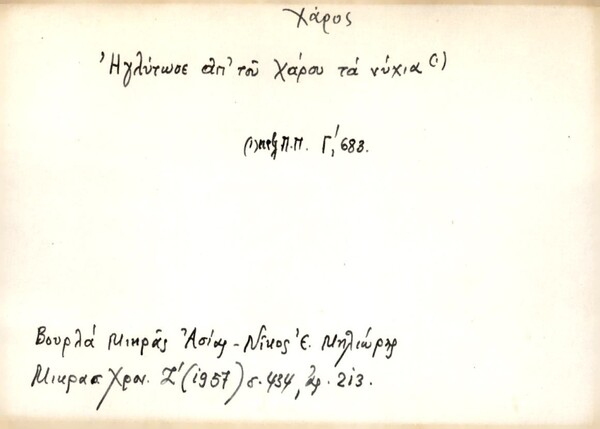 Χάρος
Ἠγλύτωσε απ' τοῦ Χάρου τά νύχια (1)
(1) Π.Π. Γ', 688.
Βουρλά Μικρᾶς Ἀσίας - Νῖκος Ἐ. Μηλιώρης
Μικρασ Χρον. Ζ' (1957) σ. 434, ἀρ. 213.